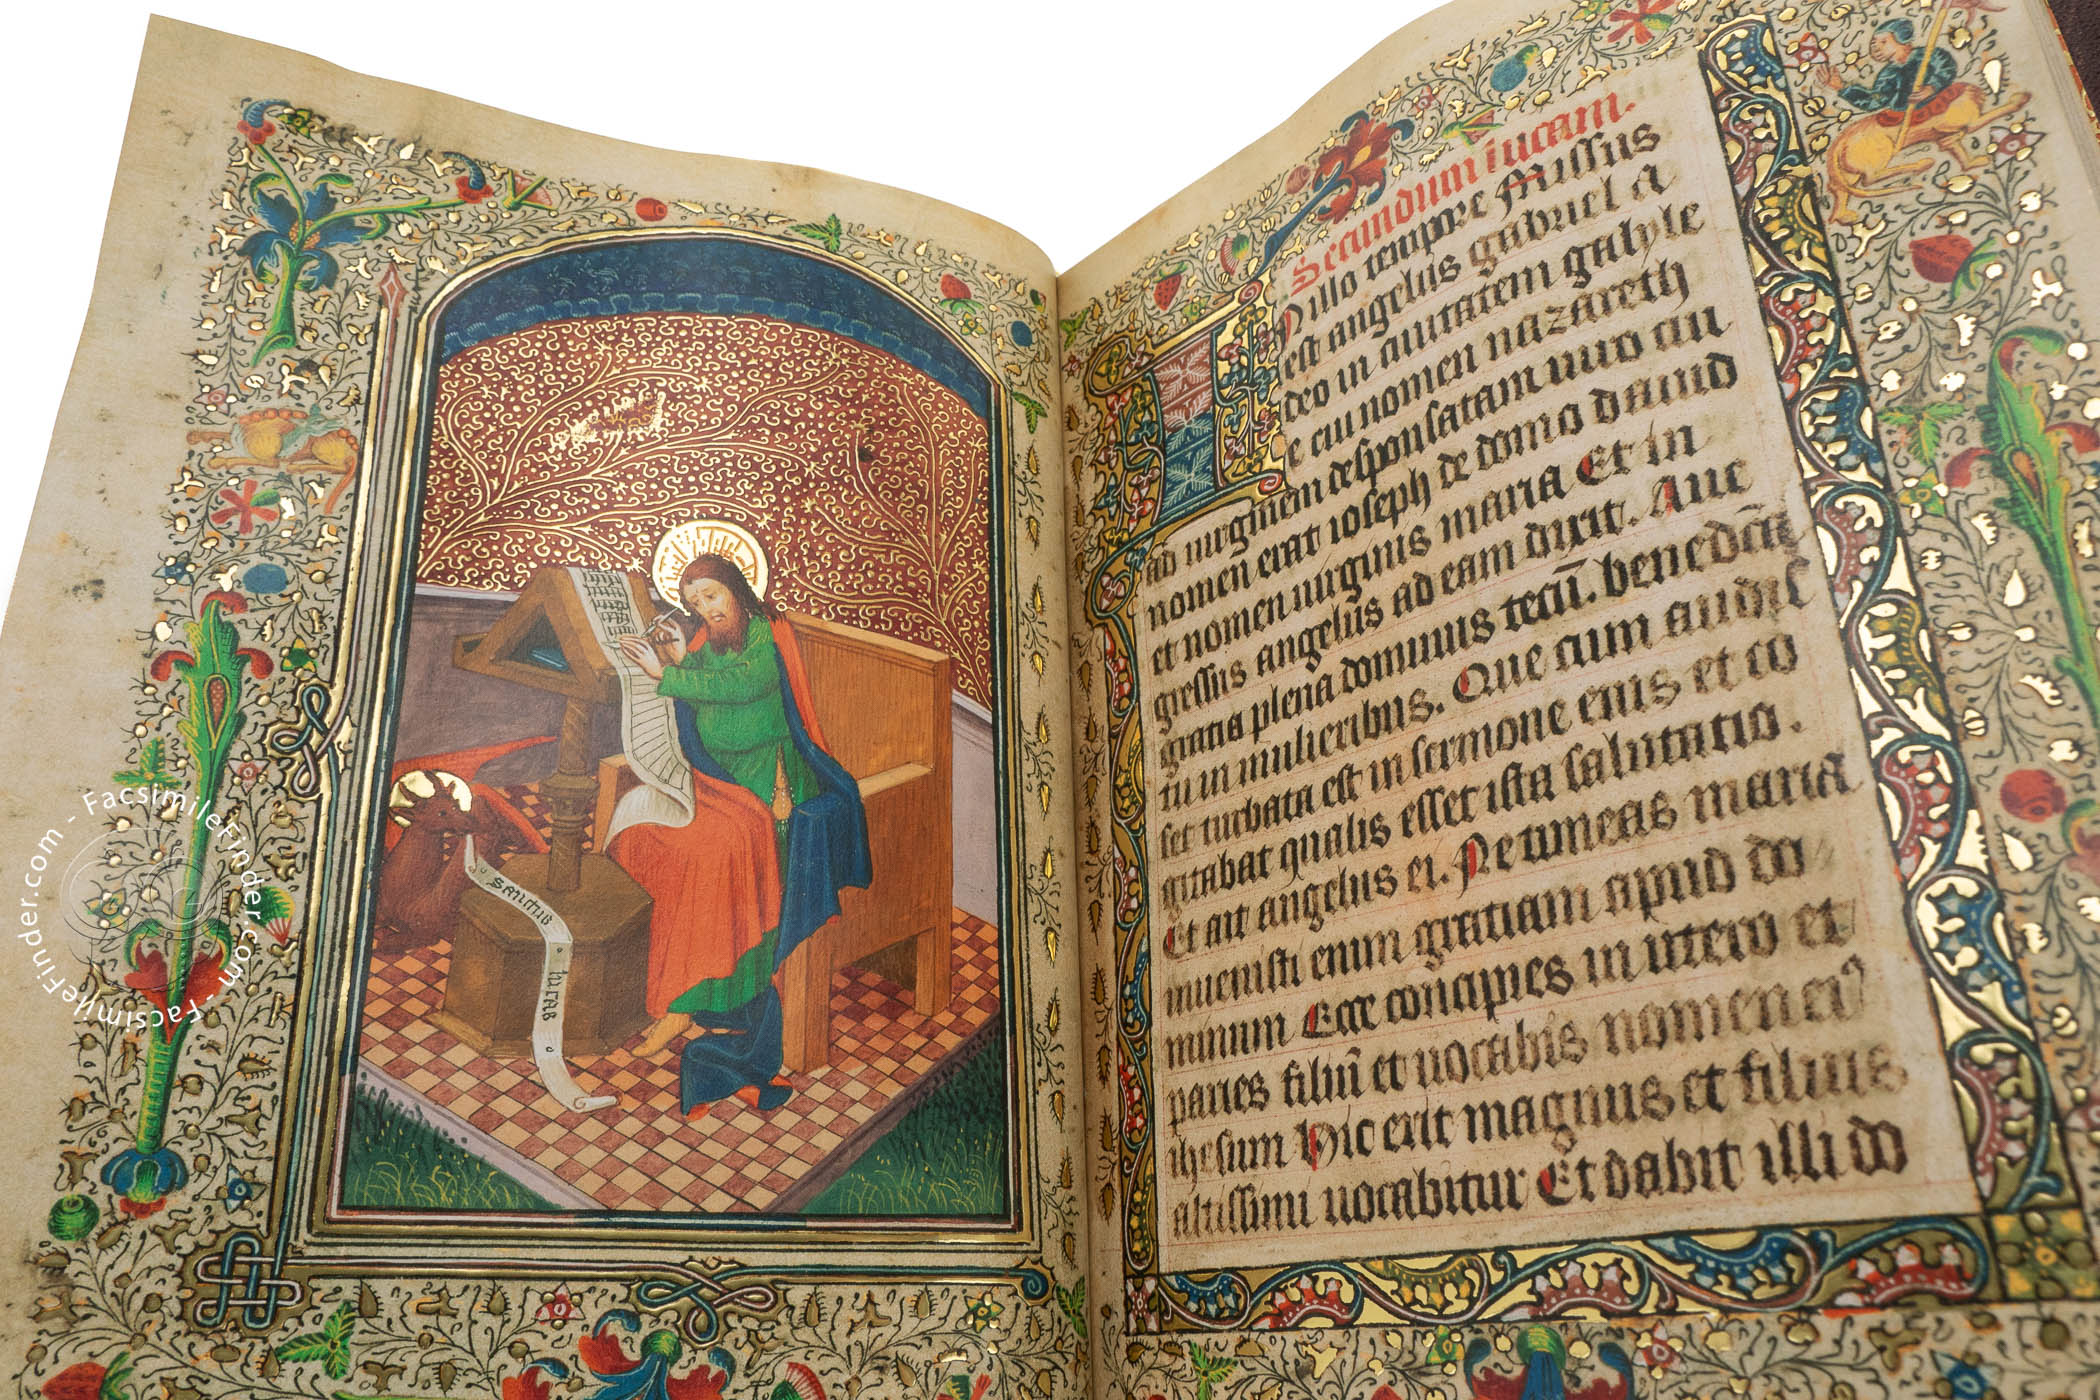 sanctus
lucas
Secundum lucam.
In illo tempore Missus
est angelus gabriel a
deo in ciuitatem galylee
cui nomen nazareth
ad uirginem desponsatam uiro cui
nomen erat ioseph de domo dauid
et nomen uirginis maria Et in
gressus angelus ad eam dixit. Aue
gratia plena dominus tecū. benedcā
tu in mulieribus. Que cum audis
set turbata est in sermone eius et co
gitabat qualis esset ista salutatio.
Et ait angelus ei. Ne timeas maria
inuenisti enim gratiam apud do
minum Ecce concipies in utero et
paries filiū et uocabis nomen eiꝰ
ihesum Hic erit magnus et filius
altissimi uocabitur Et dabit illi do
FacsimileFinder.com - FacsimileFinder.com -